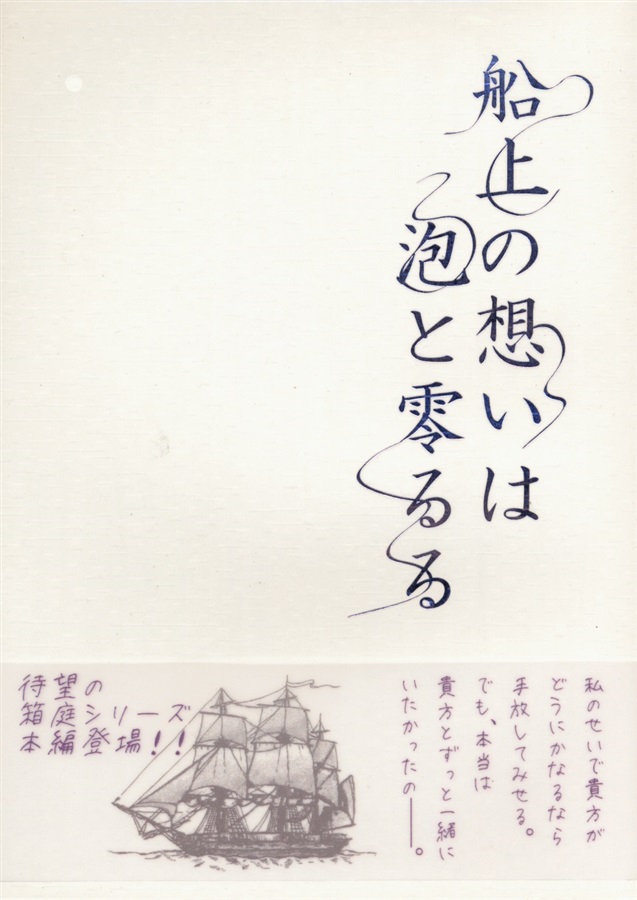 船上の想いは
泡と零るる
私のせいで貴方が
どうにかなるなら
手放してみせる。
でも、本当は
貴方とずっと一緒に
いたかったの――。
待望の
箱庭シリーズ
本編登場!!